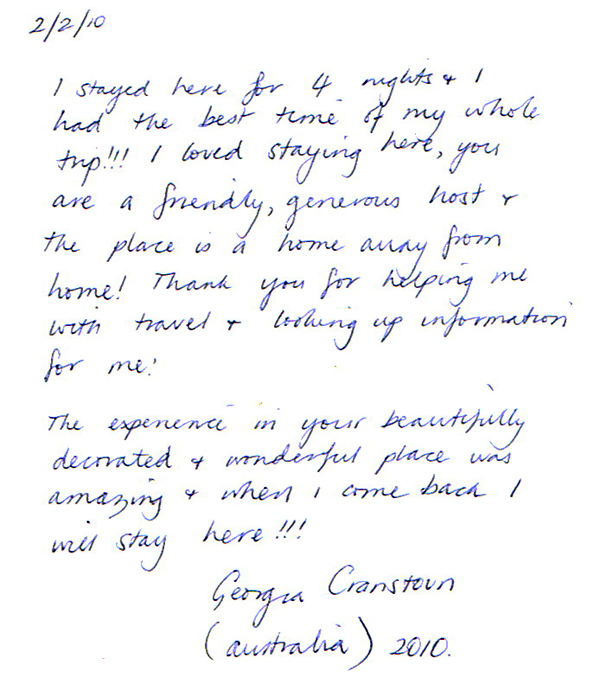 2/2/10
I stayed here for 4 nights & I
had the best time of my whole
trip!!! I loved staying here, you
are a friendly, generous host &
the place is a home away from
home! Thank you for helping me
with travel & looking up information
for me!
The experience in your beautifully
decorated & wonderful place was
amazing & when I come back I
will stay here!!!
Georgia Cranstoun
(australia) 2010.